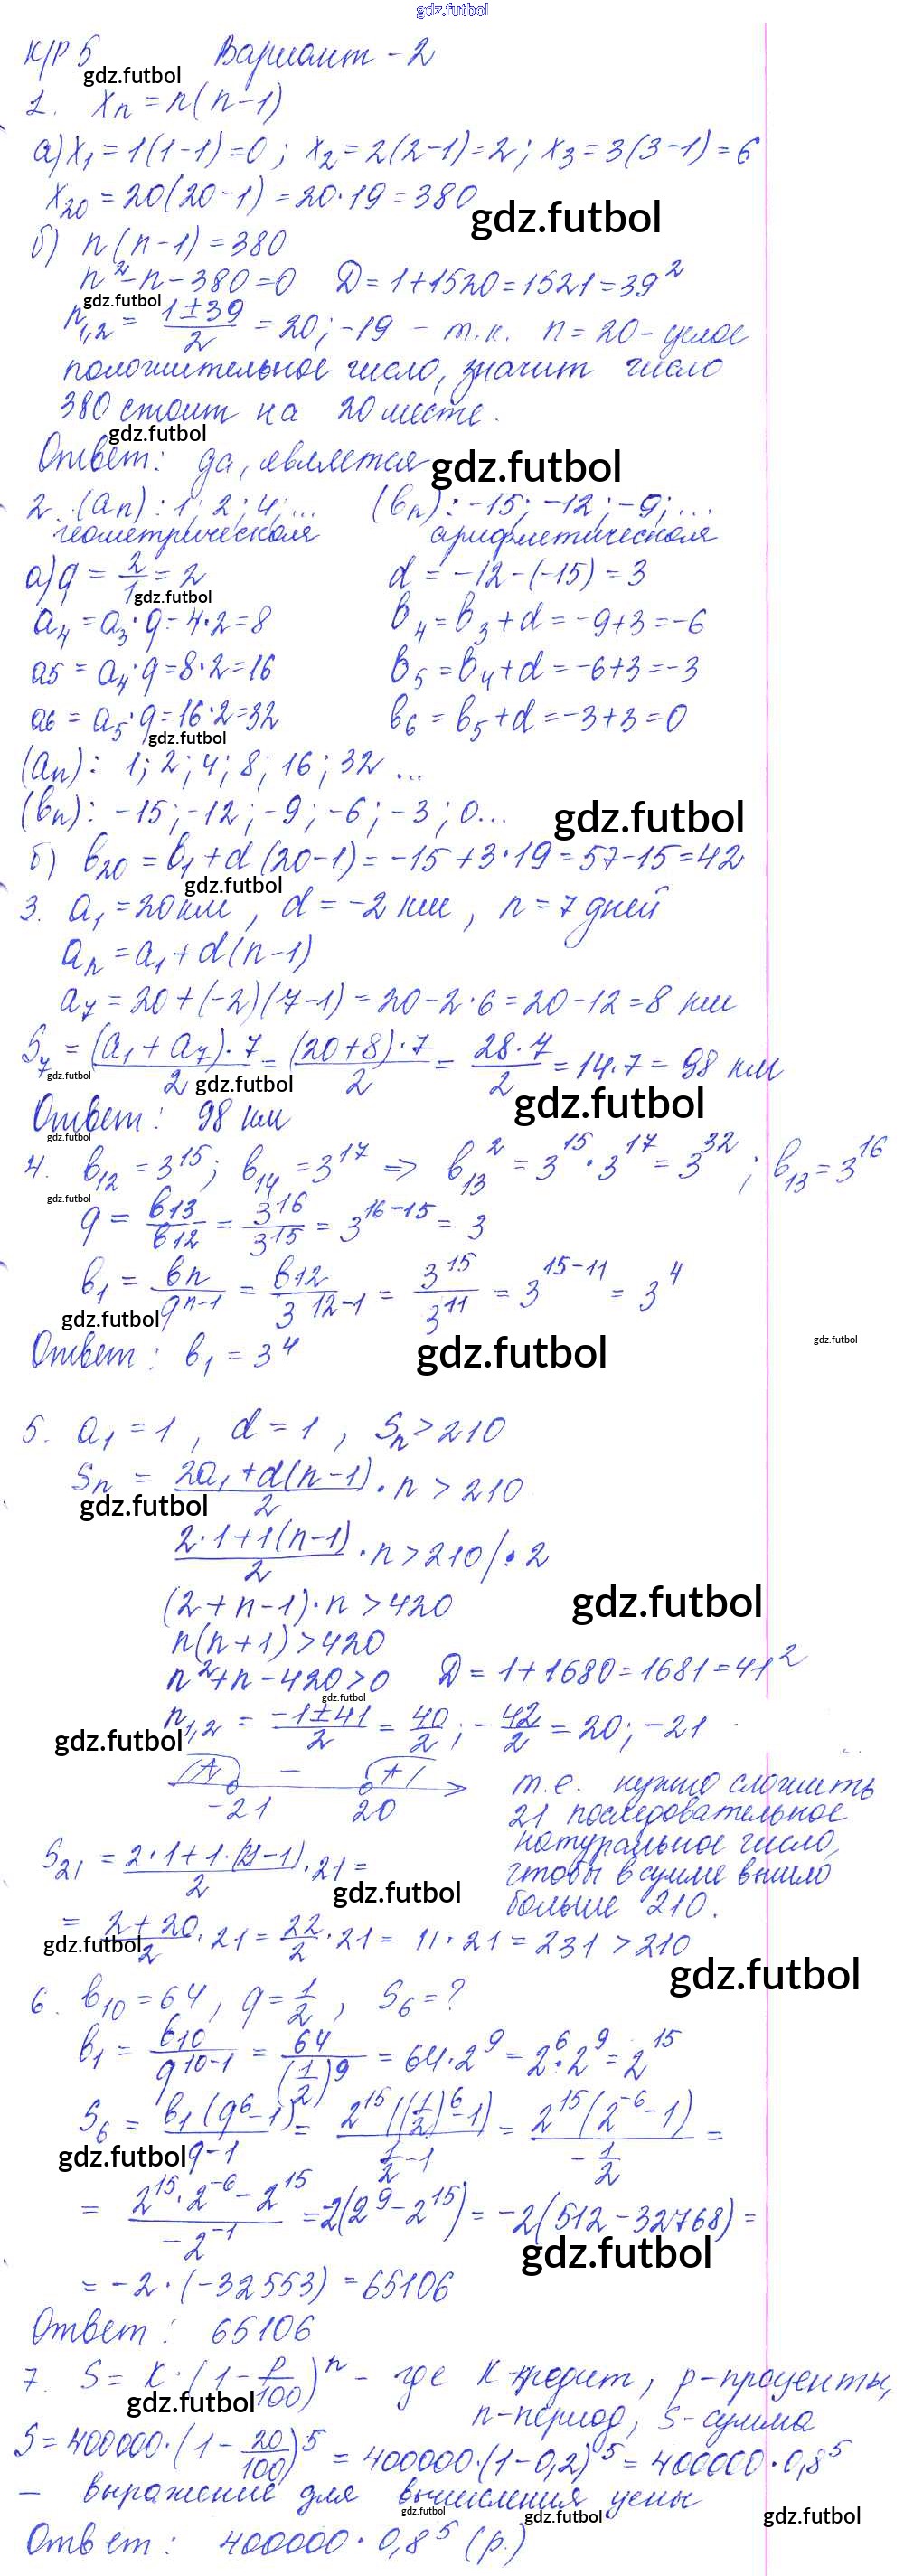 gdz.futbol
К/Р 5 Вариант - 2
gdz.futbol
1. xₙ = n(n-1)
а) x₁ = 1(1-1) = 0; x₂ = 2(2-1) = 2; x₃ = 3(3-1) = 6
x₂₀ = 20(20-1) = 20·19 = 380
gdz.futbol
б) n(n-1) = 380
n² - n - 380 = 0 D = 1+1520 = 1521 = 39²
gdz.futbol
n₁,₂ = (1±39)/2 = 20; -19 - т.к. n = 20 - целое
положительное число, значит число
380 стоит на 20 месте.
gdz.futbol
Ответ: да, является
gdz.futbol
2. (aₙ): 1; 2; 4; ... (bₙ): -15; -12; -9; ...
геометрическая арифметическая
а) q = 2/1 = 2 d = -12-(-15) = 3
gdz.futbol
a₄ = a₃·q = 4·2 = 8 b₄ = b₃+d = -9+3 = -6
a₅ = a₄·q = 8·2 = 16 b₅ = b₄+d = -6+3 = -3
a₆ = a₅·q = 16·2 = 32 b₆ = b₅+d = -3+3 = 0
gdz.futbol
(aₙ): 1; 2; 4; 8; 16; 32 ...
(bₙ): -15; -12; -9; -6; -3; 0...
gdz.futbol
б) b₂₀ = b₁+d(20-1) = -15+3·19 = 57-15 = 42
gdz.futbol
3. a₁ = 20 км, d = -2 км, n = 7 дней
aₙ = a₁+d(n-1)
a₇ = 20+(-2)(7-1) = 20-2·6 = 20-12 = 8 км
S₇ = (a₁+a₇)·7/2 = (20+8)·7/2 = 28·7/2 = 14·7 = 98 км
gdz.futbol gdz.futbol
Ответ: 98 км
gdz.futbol
gdz.futbol
4. b₁₂ = 3¹⁵; b₁₄ = 3¹⁷ ⇒ b₁₃² = 3¹⁵·3¹⁷ = 3³²; b₁₃ = 3¹⁶
gdz.futbol
q = b₁₃/b₁₂ = 3¹⁶/3¹⁵ = 3¹⁶⁻¹⁵ = 3
b₁ = bₙ/qⁿ⁻¹ = b₁₂/3¹²⁻¹ = 3¹⁵/3¹¹ = 3¹⁵⁻¹¹ = 3⁴
gdz.futbol
Ответ: b₁ = 3⁴
gdz.futbol
gdz.futbol
5. a₁ = 1, d = 1, Sₙ > 210
Sₙ = (2a₁+d(n-1))/2 · n > 210
gdz.futbol
(2·1+1(n-1))/2 · n > 210 |·2
(2+n-1)·n > 420
gdz.futbol
n(n+1) > 420
n²+n-420 > 0 D = 1+1680 = 1681 = 41²
gdz.futbol
n₁,₂ = (-1±41)/2 = 40/2; -42/2 = 20; -21
gdz.futbol
+ - +
-21 20
т.е. нужно сложить
21 последовательное
натуральное число,
чтобы в сумме вышло
больше 210.
S₂₁ = (2·1+1·(21-1))/2 · 21 =
gdz.futbol
= (2+20)/2 · 21 = 22/2 · 21 = 11·21 = 231 > 210
gdz.futbol
gdz.futbol
6. b₁₀ = 64, q = 1/2, S₆ = ?
b₁ = b₁₀/q¹⁰⁻¹ = 64/(1/2)⁹ = 64·2⁹ = 2⁶·2⁹ = 2¹⁵
S₆ = b₁(q⁶-1)/(q-1) = 2¹⁵((1/2)⁶-1)/(1/2-1) = 2¹⁵(2⁻⁶-1)/(-1/2) =
gdz.futbol
= (2¹⁵·2⁻⁶-2¹⁵)/(-2⁻¹) = -2(2⁹-2¹⁵) = -2(512-32768) =
gdz.futbol
= -2·(-32553) = 65106
Ответ: 65106
7. S = K·(1-p/100)ⁿ - где K-кредит, p-проценты,
gdz.futbol
n-период, S-сумма
S = 400000·(1-20/100)⁵ = 400000·(1-0,2)⁵ = 400000·0,8⁵
- выражение для вычисления цены
gdz.futbol gdz.futbol gdz.futbol
Ответ: 400000·0,8⁵ (р.)